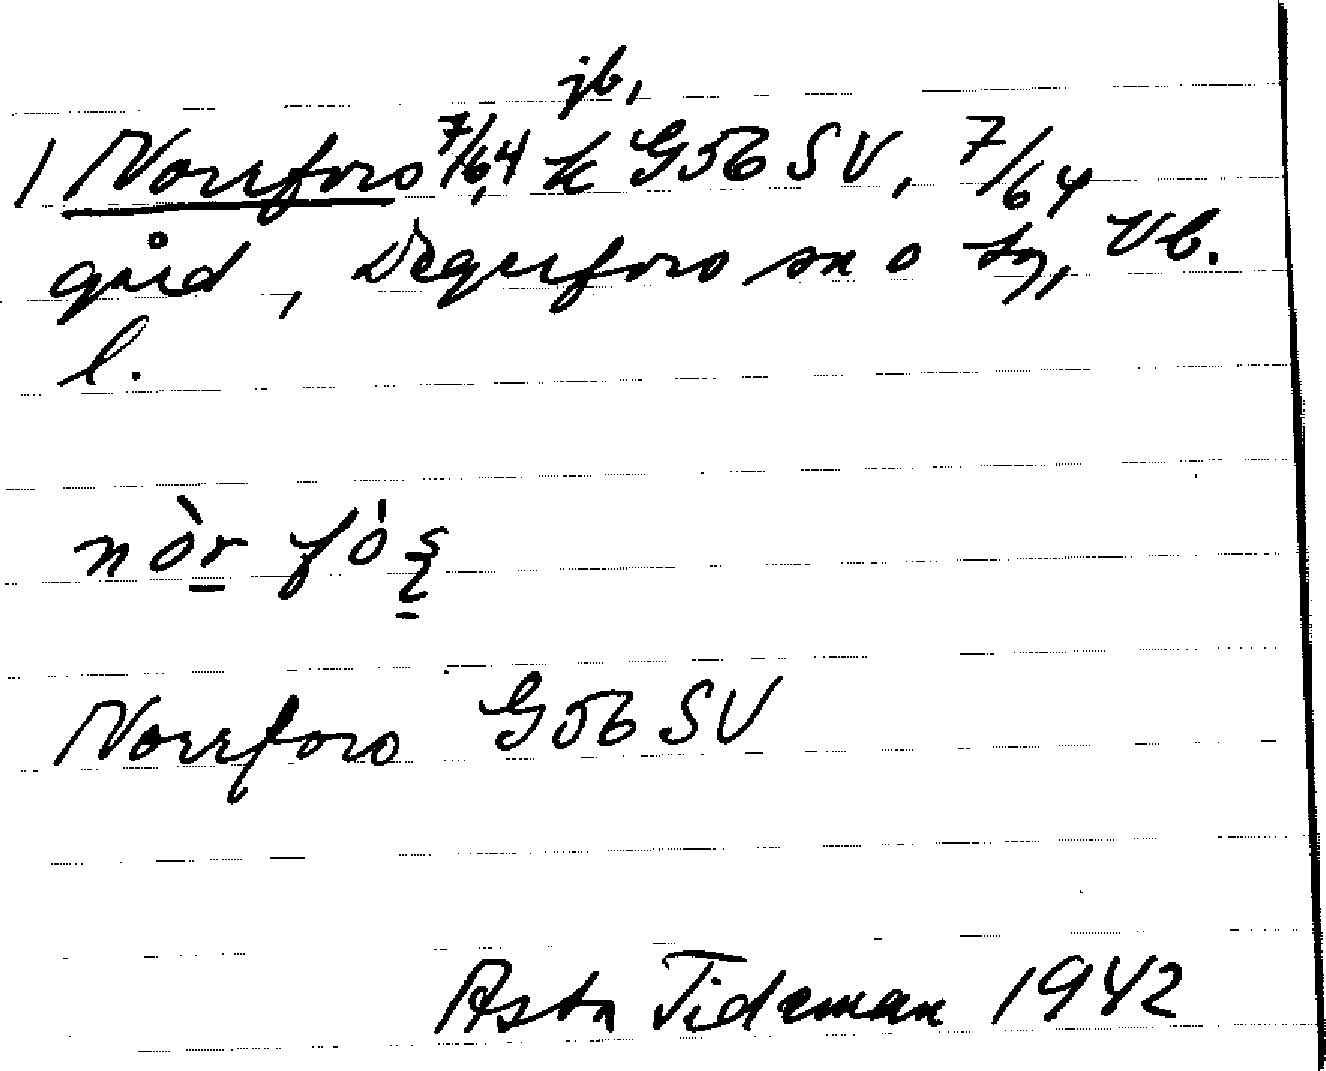 jb,
1 Norrfors 7/64 k G56 SV, 7/64
gård, Degerfors sn o tg, Vb.
l.
nòr fós
Norrfors G56 SV
Asta Tideman 1942